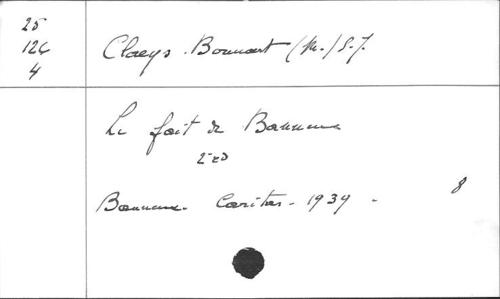 25
126
4
Claeys-Bouuaert (M.) S.J.
Le fait de Banneux
2e ED
Banneux - Caritas - 1939 -
8